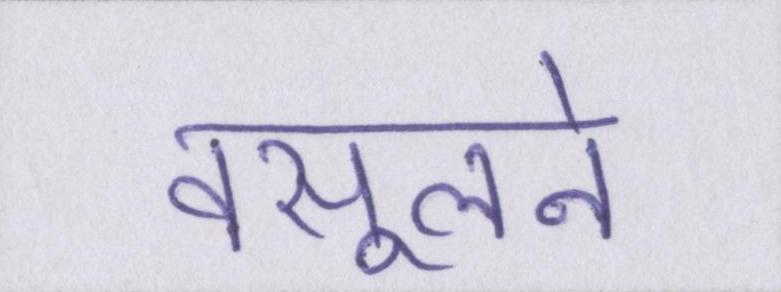 वसूलने